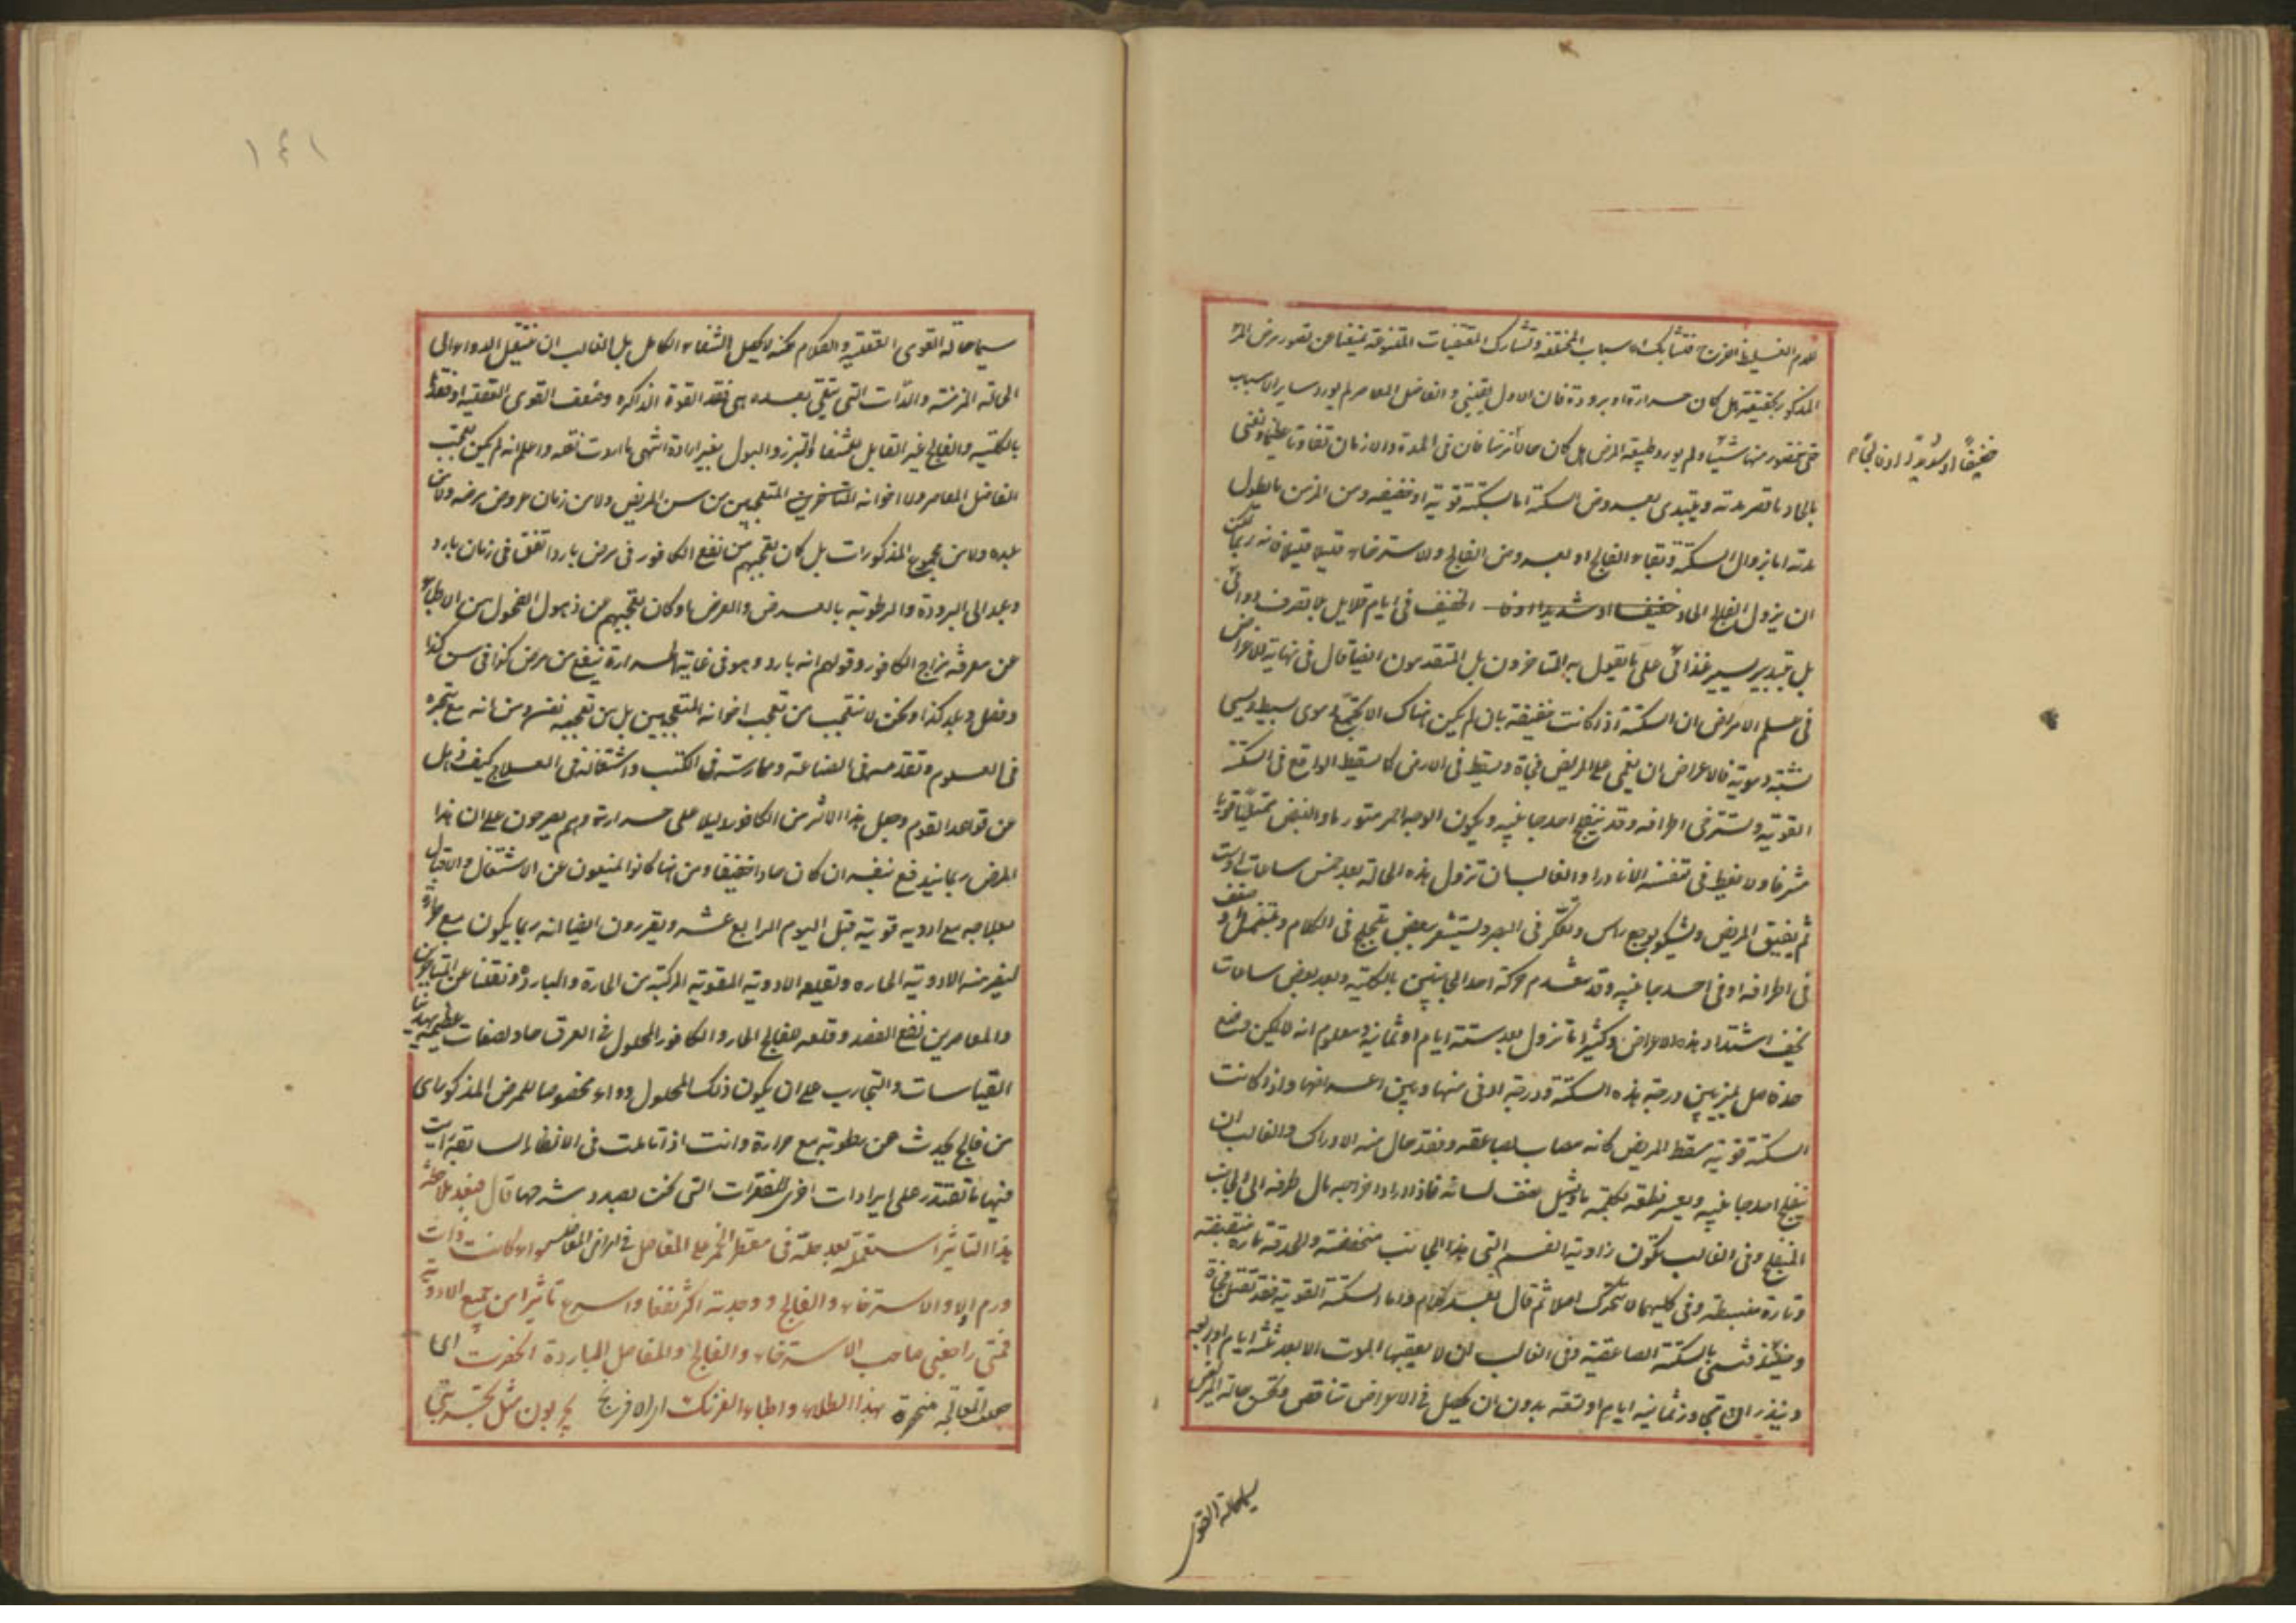 الدم الغليظ اللزج فتشابك الاسباب المختلفة وتشارك المقتضيات المتفرقة يمنعنا عن تصور مرض المر
المذكور بحقيقته هل كان حرارة او برودة فان الاول يقيني والفاضل المعاصر لم يورد ساير الاسباب
حتى نتصور منها شيئا ولم يورد طبيعة المرض هل كان حادا مزمنا فان في المدة والازمان تفاوتا عظيما ونعني
بالحاد ما قصر مدته ويبتدى بعروض السكتة اما بسكتة قوية او خفيفة ومن المزمن ما يطول
مدته اما بزوال السكتة وبقاء الفالج او بعروض الفالج والاسترخاء قليلا قليلا فانه ربما يمكن
ان يزول الفالج الحاد خفيفا او شديدا اذا الخفيف في ايام قلايل بلا تصرف دوائي
خفيفا او شديدا
بل بتدبير يسير غذائي على ما يقول به المتاخرون بل المتقدمون ايضا قال في نهاية الاعراض
في علم الامراض ان السكتة اذا كانت خفيفة بان لم يكن هناك الا تجمع دموى بسيط ويسمى
سكتة دموية فالاعراض ان يغمى على المريض فجاة ويسقط في الارض كما يسقط الواقع في السكتة
القوية وتسترخى اطرافه وقد ينفلج احد جانبيه ويكون الوجه احمر متورما والنبض ممتليا قويا
مشرفا ولا يغط في تنفسه الا نادرا والغالب ان تزول هذه الحالة بعد خمس ساعات او ست
ثم يفيق المريض ويشكو بوجع راس وتعكر في البصر ويستشعر بعض تلجلج في الكلام وبتنمل او ضعف
في اطرافه او في احد جانبيه وقد تنعدم حركة احد الجانبين بالكلية وبعد بعض ساعات
يخف اشتداد هذه الاعراض وكثيرا ما تزول بعد ستة ايام او ثمانية ومعلوم انه لا يمكن وضع
حد فاصل يميز بين درجة هذه السكتة ودرجة ادنى منها وبين اعراضها واذا كانت
السكتة قوية سقط المريض كانه مصاب بصاعقة وفقد حال منه الادراك والغالب ان
ينفلج احد جانبيه ويعسر نطقه بكلمة ما ويثقل نصف لسانه فاذا اراد اخراجه مال طرفه الى الجانب
المنفلج وفي الغالب تكون زاوية الفم التي بهذا الجانب منخفضة والحدقة تارة منقبضة
وتارة منبسطة وفي كليهما لا تتحرك اصلا ثم قال بعد كلام واما السكتة القوية فقد تقتل فجاة
وحينئذ فتسمى بالسكتة الصاعقية وفي الغالب ان لا يعقبها الموت الا بعد ثلثة ايام او اربعة
ويندر ان تتجاوز ثمانية ايام او تسعة بدون ان يحصل في الاعراض تناقص وتحسن حالة المريض
سيما حالة القوى
١٤١
سيما حالة القوى العقلية والكلام لكنه لا يحصل الشفاء الكامل بل الغالب ان ينتقل الداء الى
الحالة المزمنة والآفات التي تبقى بعده هي فقد القوة الذاكرة وضعف القوى العقلية او فقدها
بالكلية والفالج الغير القابل للشفا والتبرز والبول بغير ارادة انتهى ما اردت نقله واعلم انه لم يكن تعجب
الفاضل المعاصر ولا اخوانه المتاخرين المتعجبين من سن المريض ولا من زمان عروض مرضه ولا من
بلده ولا من مجموع المذكورات بل كان تعجبهم من نفع الكافور في مرض بارد اتفق في زمان بارد
وبلد الى البرودة والرطوبة بالعرض والعرض او كان تعجبهم من ذهول الفحول من الاطباء
عن معرفة مزاج الكافور وقولهم انه بارد وهو في غاية الحرارة ينفع من مرض كذا في سن كذا
وفصل وبلد كذا ونحن لا نتعجب من تعجب اخوانه المتعجبين بل من تعجبه نفسه ومن انه مع تبحره
في العلوم وتقدمه في الصناعة وممارسته في الكتب واشتغاله في العلاج كيف ذهل
عن قواعد القوم وجعل هذا الاثر من الكافور دليلا على حرارته وهم يصرحون على ان هذا
المرض ربما يندفع بنفسه ان كان حادا خفيفا ومن هنا كانوا يمنعون عن الاشتغال والاقبال
بعلاجه مع ادويه قوية قبل اليوم الرابع عشر ويقررون ايضا انه ربما يكون مع حرارة
ليضر منه الادوية الحاره وتقلعه الادوية المقوية المركبة من الحارة والباردة ونقلنا عن المتاخرين
والمعاصرين نفع الفصد وقلعه للفالج الحار والكافور المحلول في العرق حاد لصفات عظيمة يهدينا
القياسات والتجارب على ان يكون ذلك المحلول دواء مخصوصا للمرض المذكور اى
من فالج يحدث عن رطوبة مع حرارة وانت اذا تاملت في الانظار السابقة رايت
فيها ما تقتدر على ايرادات اخرى للفقرات التي نحن بصدد شرحها قال فبعد ملاحظة
هذا التاثير استعملته بعد حلته في مقطر الخمر على المفاصل في امراض المفاصل سواء كانت ذات
ورم او لا والاسترخاء والفالج ووجدته اكثر نفعا واسرع تاثيرا من جميع الادوية
فمتى راجعني صاحب الاسترخاء والفالج والمفاصل الباردة انحصرت اى
صارت المعالجة منحصرة بهذا الطلاء واطباء الفرنك اى الافرنج يجربون مثل تجربتي